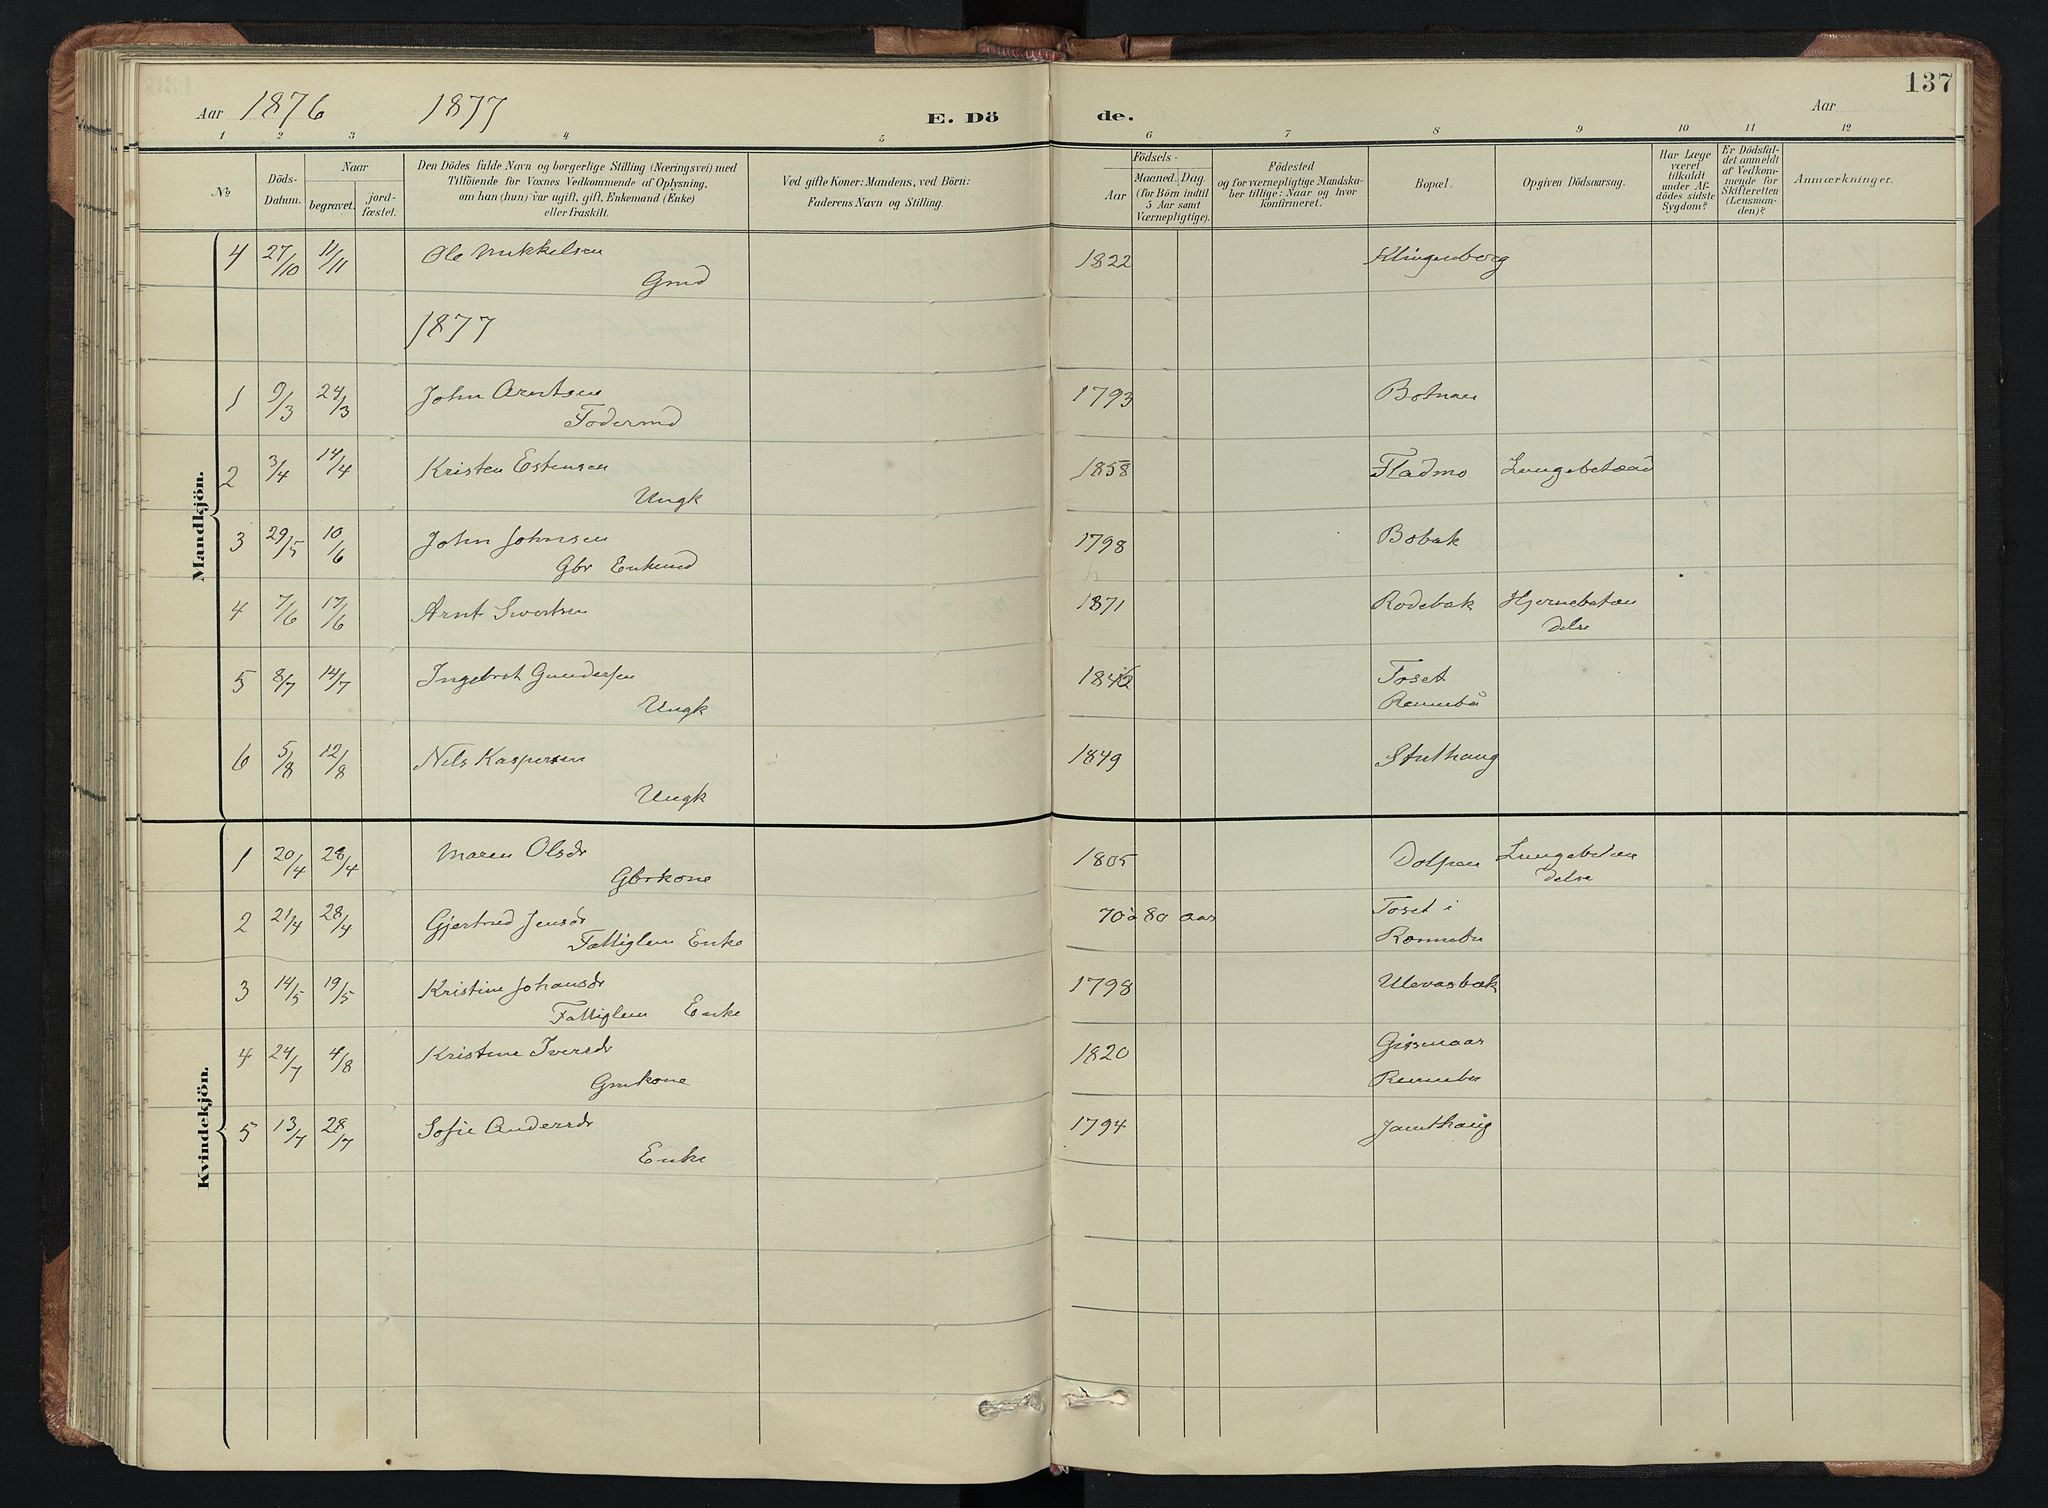 137
Aar 1876 1877 E. Dö de. Aar
1 2 3 4 5 6 7 8 9 10 11 12
No
Döds-Datum.
Naar
begravet.
jord-fæstet.
Den Dödes fulde Navn og borgerlige Stilling (Næringsvei) med
Tilföiende for Voxnes Vedkommende af Oplysning,
om han (hun) var ugift, gift, Enkemand (Enke)
eller fraskilt.
Ved gifte Koner: Mandens, ved Börn:
Faderens Navn og Stilling.
Födsels-
Aar
Maaned. Dag.
(for Börn indtil
5 Aar samt
Værnepligtige).
Födested
og for værnepligtige Mandska-
ber tillige: Naar og hvor
konfirmeret.
Bopæl.
Opgiven Dödsaarsag.
Har Læge
været
tilkaldt
under Af-
dödes sidste
Sygdom?
Er Dödsfal-
det anmeldt
af Vedkom-
mende for
Skifteretten
(Lensman-
den)?
Anmærkninger.
Mandkjön.
4 27/10 11/11 Ole Mikkelsen 1822 Klingenberg
Gmd
1877
1 9/3 24/3 John Arntsen 1793 Botnan
Födermd
2 3/4 14/4 Kristen Estensen 1858 Fladmo
Ungk
3 29/5 10/6 John Johnsen 1798 Bobak
Gbr Enkemd
4 7/6 17/6 Arnt Sivertsen 1871 Rödebak Hjernebetæn
delse
5 8/7 14/7 Ingebret Gundersen Toset
Ungk Rennebu
6 5/8 12/8 Nils Kaspersen 1849 Stuthaug
Ungk
Kvindekjön.
1 20/4 28/4 Maren Olsdr 1805 Dolpen Lungebetæn
Gbrkone delse
2 21/4 28/4 Gjertrud Jensdr 70 à 80 aar Toset i
Fattiglem Enke Rennebu
3 14/5 19/5 Kristine Johansdr 1798 Ulevasbæk
Fattiglem Enke
4 24/7 4/8 Kristine Iversdr 1820 Gissenaas
Gmkone Rennebu
5 13/7 28/7 Sofie Andersdr 1794 Jamthaug
Enke